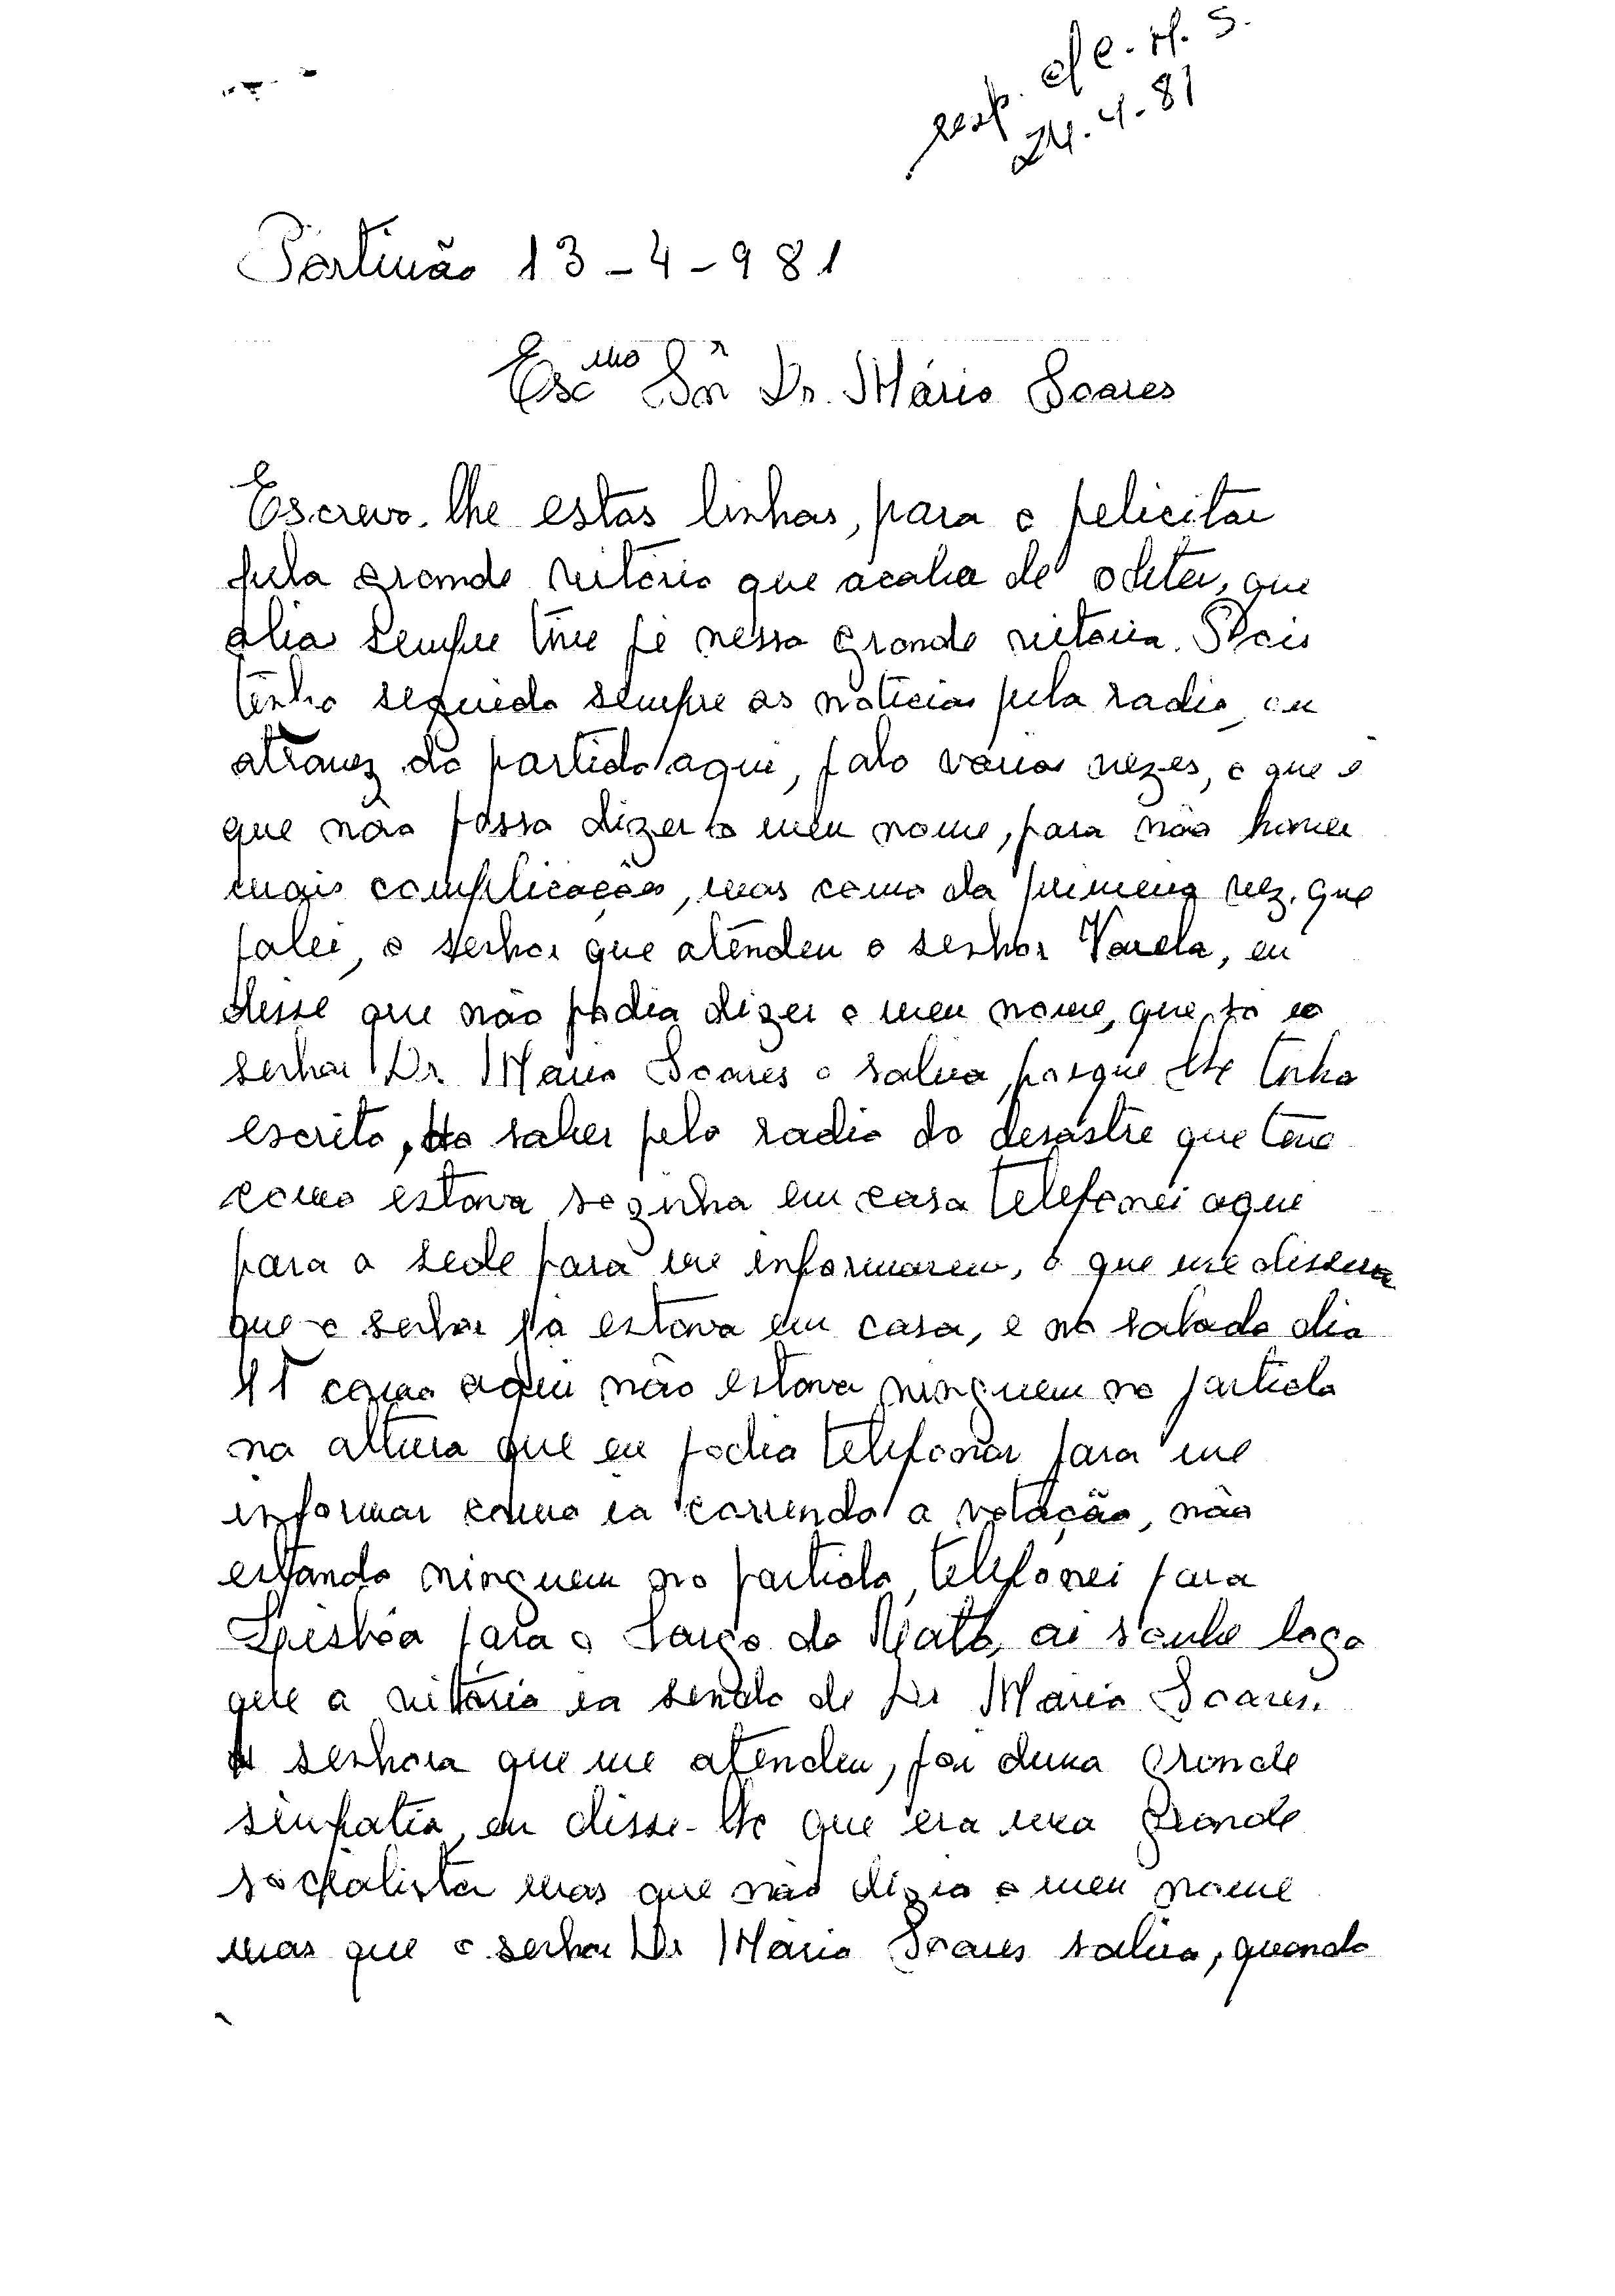 resp. c/ C. M. S.
24.4.81
Portimão 13-4-981
Escmo Sôr Dr. Mário Soares
Escrevo-lhe estas linhas, para o felicitar
pela grande vitório que acaba de obter, que
alias sempre tive fé nessa grande vitoria. Pois
tenho seguido sempre as noticias pela radio, ou
atravez do partido aqui, falo varias vezes, o que é
que não possa dizer o meu nome, para não haver
mais complicações, mas como da primeira vez que
falei, o senhor que atendeu o senhor Varela, eu
disse que não podia dizer o meu nome, que só o
senhor Dr. Mario Soares o sabia, porque lhe tinha
escrito, ao saber pela radio do desastre que teve
como estava sozinha em casa telefonei aqui
para a sede para me informarem, o que me disseram
que o senhor já estava em casa, e no sabado dia
11 como aqui não estava ninguem no partido
na altura que eu podia telefonar para me
informar como ia correndo a votação, não
estando ninguem no partido, telefonei para
Lisbôa para o Largo do Rato, ai soube logo
que a vitória ia sendo de Dr Mario Soares.
A senhora que me atendeu, foi duma grande
simpatia, eu disse-lhe que era uma grande
socialista mas que não dizia o meu nome
mas que o senhor Dr Mario Soares sabia, quando